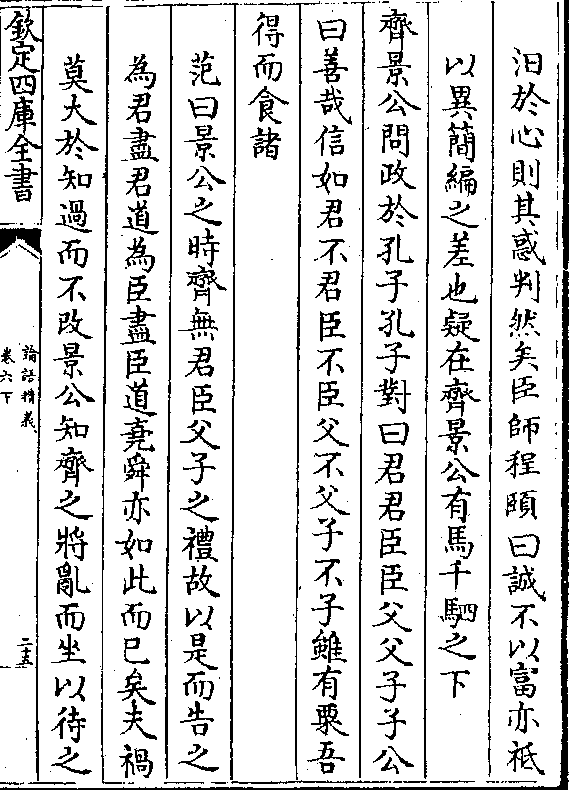 汨於心則其惑判然矣臣師程頤曰誠不以富亦祗
以異簡編之差也疑在齊景公有馬千駟之下
齊景公問政於孔子孔子對曰君君臣臣父父子子公
曰善哉信如君不君臣不臣父不父子不子雖有粟吾
得而食諸
范曰景公之時齊無君臣父子之禮故以是而告之
為君盡君道為臣盡臣道堯舜亦如此而已矣夫禍
莫大於知過而不改景公知齊之將亂而坐以待之
欽定四庫全書
論語精義
卷六下
二十五